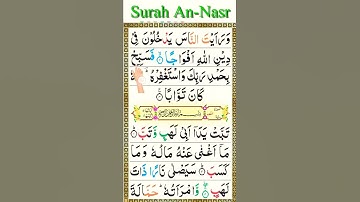 Surah An-Nasr
وَرَاَيْتَ النَّاسَ يَدْخُلُوْنَ فِيْ
دِيْنِ اللّٰهِ اَفْوَاجًا ۙ فَسَبِّحْ
بِحَمْدِ رَبِّكَ وَاسْتَغْفِرْهُ ؕ
كَانَ تَوَّابًا
بِسْمِ اللّٰهِ الرَّحْمٰنِ الرَّحِيْمِ
تَبَّتْ يَدَاۤ اَبِيْ لَهَبٍ وَّتَبَّ ؕ
مَاۤ اَغْنٰى عَنْهُ مَالُهٗ وَمَا
كَسَبَ ؕ سَيَصْلٰى نَارًا ذَاتَ
لَهَبٍ ۚ وَّامْرَاَتُهٗ ؕ حَمَّالَةَ